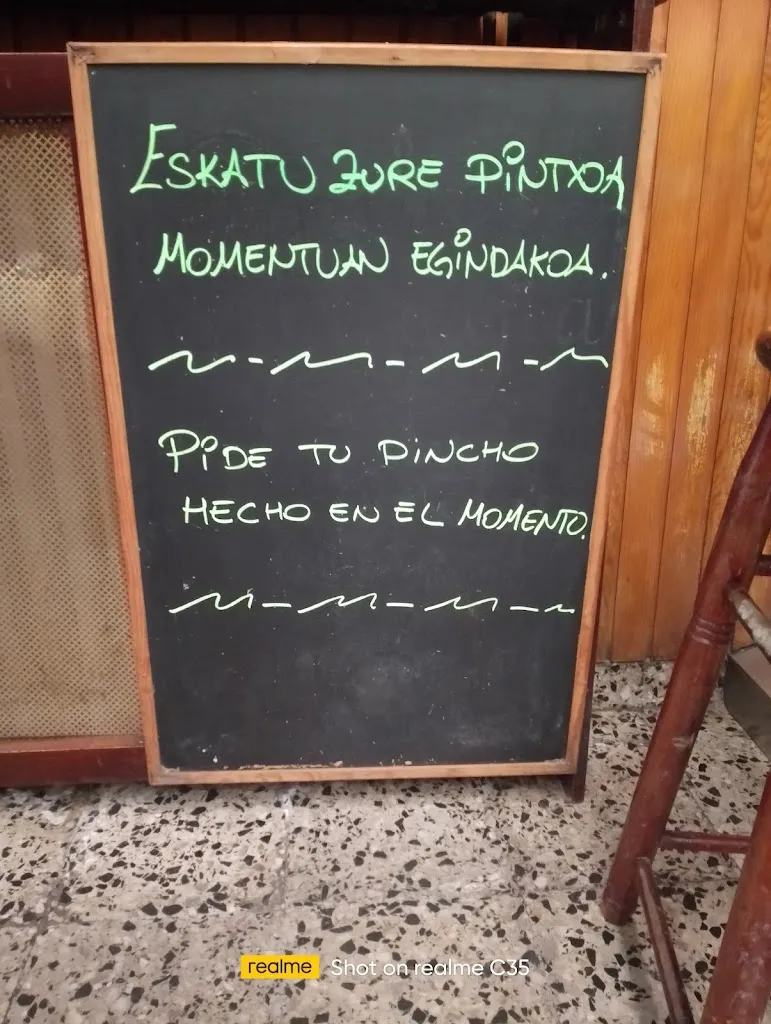 ESKATU ZURE PINTXOA
MOMENTUAN EGINDAKOA.
PIDE TU PINCHO
HECHO EN EL MOMENTO.
realme Shot on realme C35